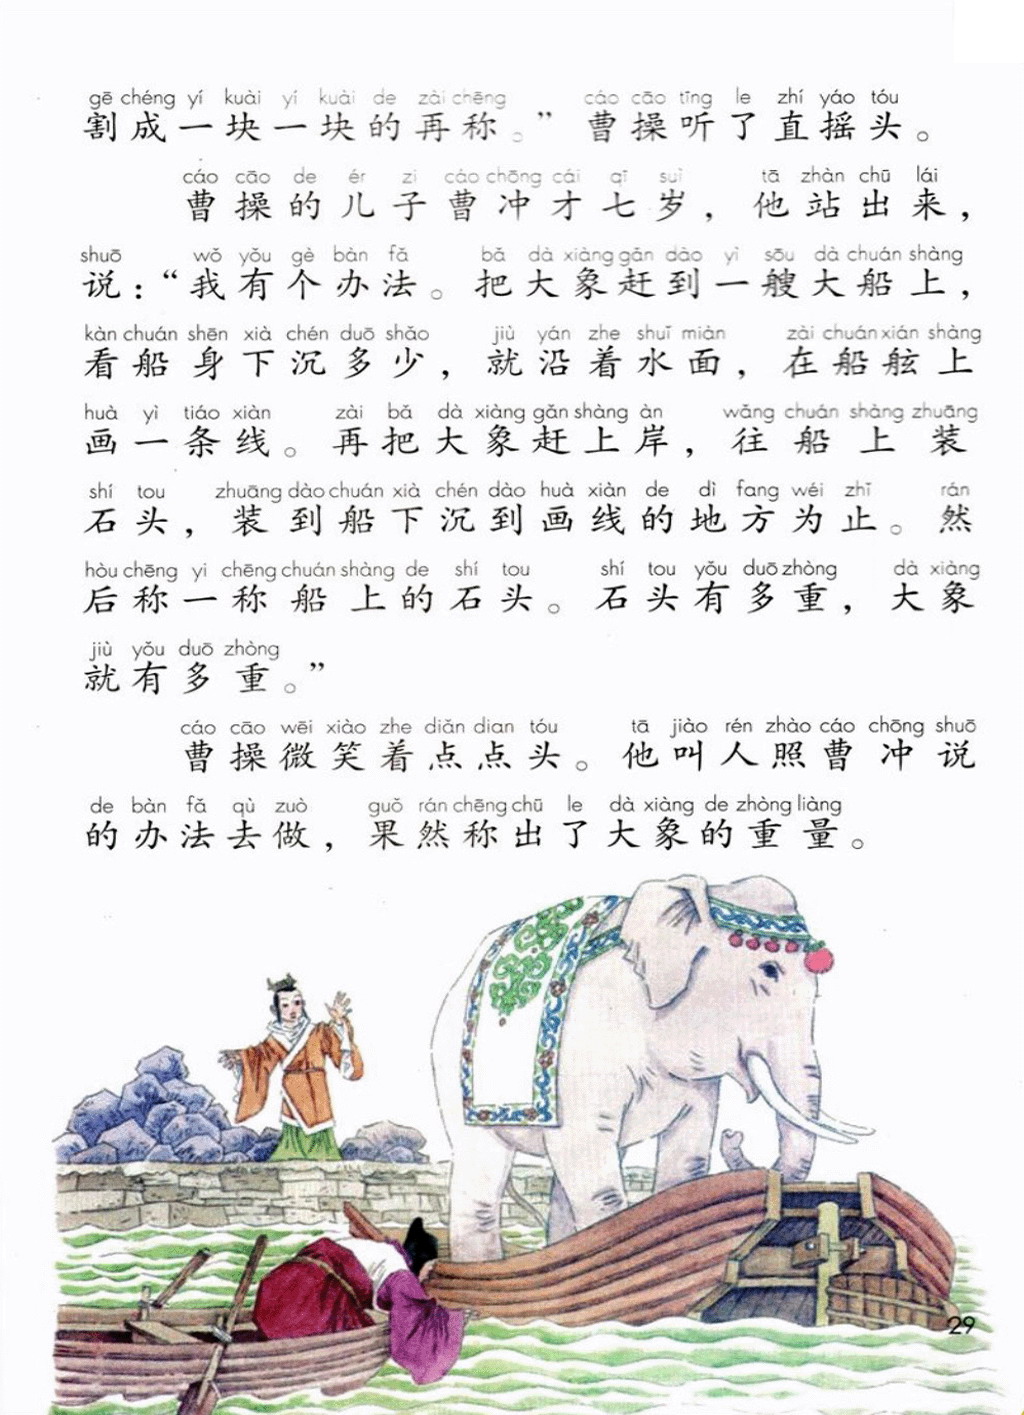 gē chéng yí kuài yí kuài de zài chēng cáo cāo tīng le zhí yáo tóu
割成一块一块的再称。”曹操听了直摇头。
cáo cāo de ér zi cáo chōng cái qī suì tā zhàn chū lái
曹操的儿子曹冲才七岁，他站出来，
shuō wǒ yǒu gè bàn fǎ bǎ dà xiàng gǎn dào yì sōu dà chuán shàng
说：“我有个办法。把大象赶到一艘大船上，
kàn chuán shēn xià chén duō shǎo jiù yán zhe shuǐ miàn zài chuán xián shàng
看船身下沉多少，就沿着水面，在船舷上
huà yì tiáo xiàn zài bǎ dà xiàng gǎn shàng àn wǎng chuán shàng zhuāng
画一条线。再把大象赶上岸，往船上装
shí tou zhuāng dào chuán xià chén dào huà xiàn de dì fang wéi zhǐ rán
石头，装到船下沉到画线的地方为止。然
hòu chēng yi chēng chuán shàng de shí tou shí tou yǒu duō zhòng dà xiàng
后称一称船上的石头。石头有多重，大象
jiù yǒu duō zhòng
就有多重。”
cáo cāo wēi xiào zhe diǎn dian tóu tā jiào rén zhào cáo chōng shuō
曹操微笑着点点头。他叫人照曹冲说
de bàn fǎ qù zuò guǒ rán chēng chū le dà xiàng de zhòng liàng
的办法去做，果然称出了大象的重量。
29